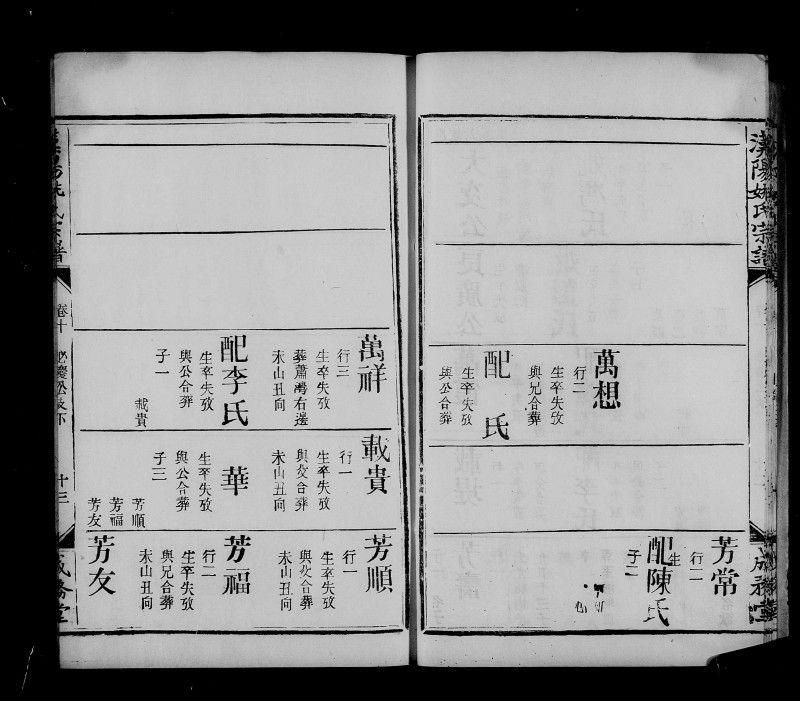 漢陽姚氏宗譜
萬想
行二
生卒失攷
與兄合葬
配 氏
生卒失攷
與公合葬
芳常
行二
生
配陳氏
子二
萬祥
行三
生卒失攷
葬蕭灣右邊
未山丑向
配李氏
生卒失攷
與公合葬
子一
載貴
載貴
行一
生卒失攷
與父合葬
未山丑向
華
生卒失攷
與公合葬
子三
芳順
芳福
芳友
芳順
行一
生卒失攷
與父合葬
未山丑向
芳福
行二
生卒失攷
與兄合葬
未山丑向
芳友
卷十
十三